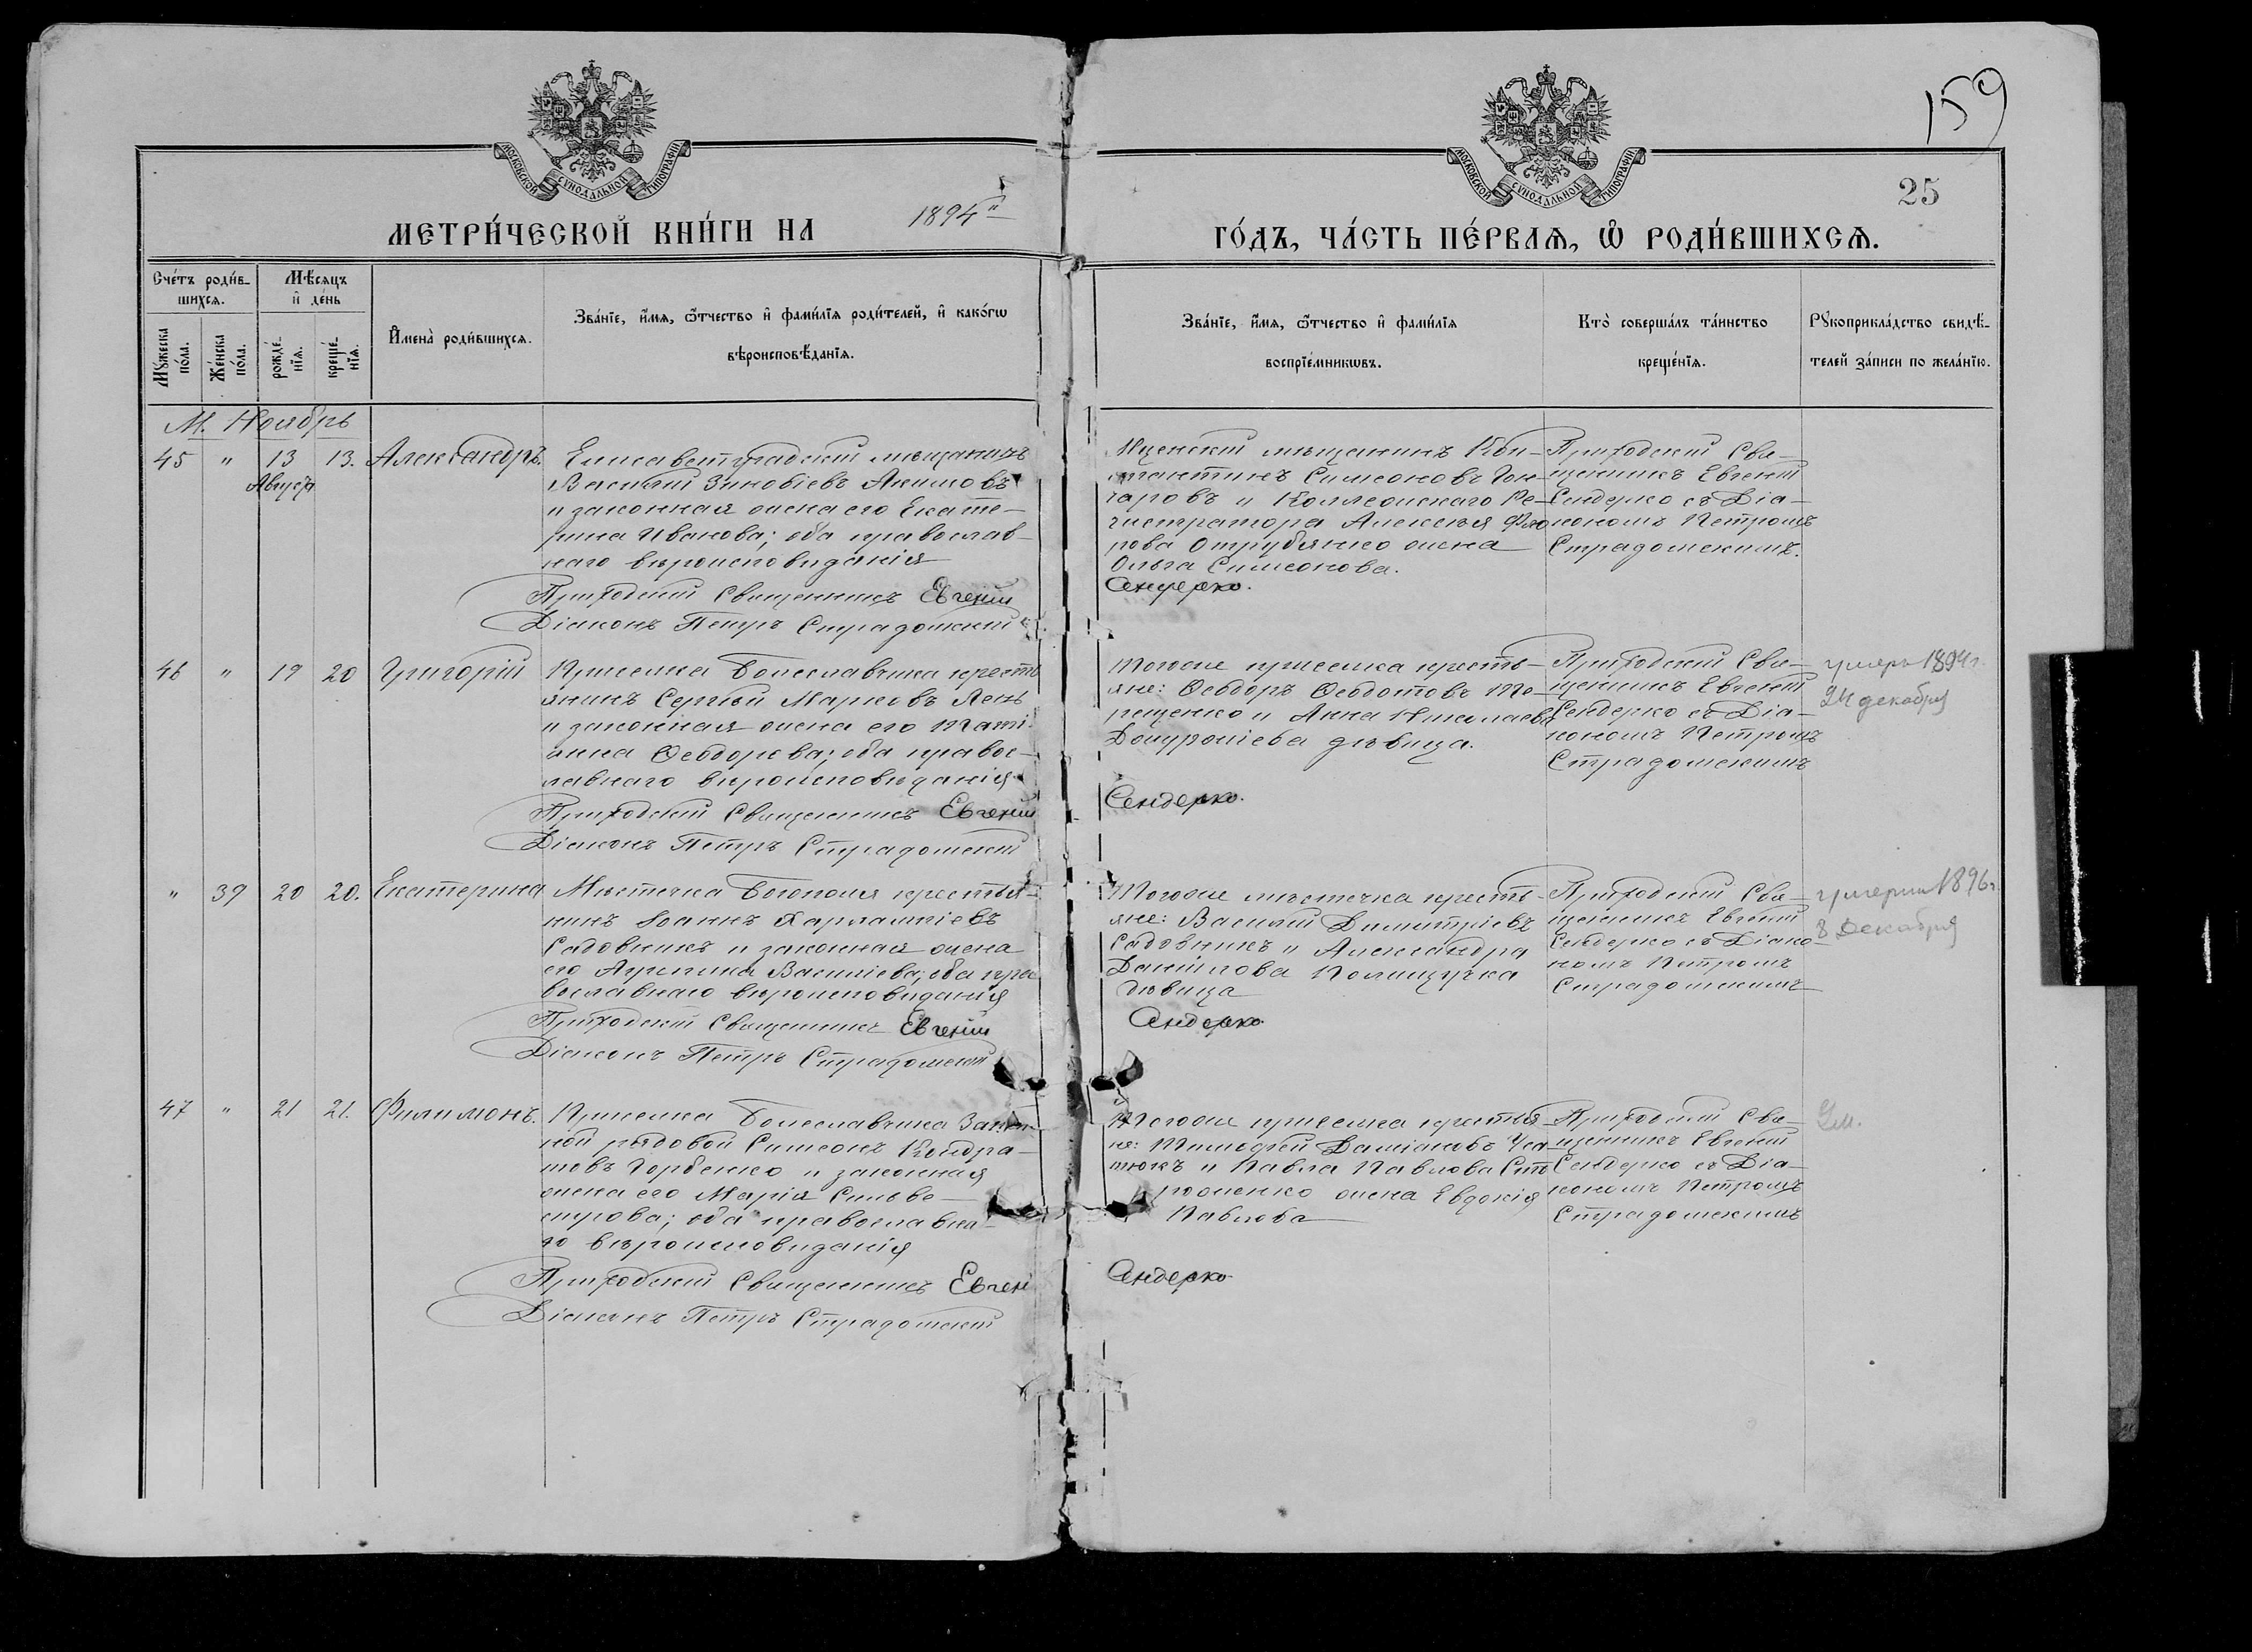 159
25
МОСКОВСКОЙ СѴНОДАЛЬНОЙ ТИПОГРАФІИ
МОСКОВСКОЙ СѴНОДАЛЬНОЙ ТИПОГРАФІИ
МЕТРИ́ЧЕСКОЙ КНИ́ГИ НА 1894й
ГО́ДЪ, ЧА́СТЬ ПЕ́РВАѦ, Ѡ҆ РОДИ́ВШИХСѦ.
Сче́тъ роди́в-
шихсѧ.
Мѣ́сѧцъ
и҆ де́нь
Мꙋ́жеска по́ла.
Же́нска по́ла.
рожде́-нїѧ.
креще́-нїѧ.
И҆мена̀ роди́вшихсѧ.
Зва́нїе, и҆́мѧ, ѻ҆́тчество и҆ фами́лїѧ роди́телей, и҆ како́гѡ
вѣроисповѣ́данїѧ.
Зва́нїе, и҆́мѧ, ѻ҆́тчество и҆ фами́лїѧ
воспрїе́мникѡвъ.
Кто̀ соверша́лъ та́инство
креще́нїѧ.
Рꙋкоприкла́дство свидѣ́-
телей за́писи по жела́нїю.
М. Ноябрь
45 " 13 13. Александръ.
Августа
Елисаветградскій мѣщанинъ
Василій Зиновіевъ Акимовъ
и законная жена его Екате-
рина Иванова; оба православ-
наго вѣроисповѣданія
Приходскій Священникъ Евгеній
Діаконъ Петръ Страдомскій
Мценскій мѣщанинъ Кон-
стантинъ Симеоновъ Гон-
чаровъ и Коллежскаго Ре-
гистратора Алексѣя
рова жена
Ольга Симеонова.
Сендерко.
Приходскій Свя-
щенникъ Евгеній
Сендерко съ Діа-
кономъ Петромъ
Страдомскимъ.
46 " 19 20 Григорій
Приселка Болеславчика кресть
янинъ Сергѣй Марковъ Лень
и законная жена его Тати-
анна Ѳеодорова; оба правос-
лавнаго вѣроисповѣданія
Приходскій Священникъ Евгеній
Діаконъ Петръ Страдомскій
Тогоже приселка кресть-
яне: Ѳеодоръ Ѳеодотовъ Те-
рещенко и Анна Николаева
дѣвица.
Сендерко.
Приходскій Свя-
щенникъ Евгеній
Сендерко съ Діа-
кономъ Петромъ
Страдомскимъ
умеръ 1894 г.
24 декабря
" 39 20 20. Екатерина
Мѣстечка Богополя крестья-
нинъ Іоаннъ Харлампіевъ
Садовникъ и законная жена
его Агрипина Василіева; оба пра
вославнаго вѣроисповѣданія
Приходскій Священникъ Евгеній
Діаконъ Петръ Страдомскій
Тогоже мѣстечка кресть-
яне: Василій Димитріевъ
Садовникъ и Александра
Даніилова Полищучка
дѣвица
Сендерко
Приходскій Свя-
щенникъ Евгеній
Сендерко съ Діако-
номъ Петромъ
Страдомскимъ
умерла 1896 г.
8 Декабря
47 " 21 21. Филимонъ.
Приселка Болеславчика Запас-
ной рядовой Симеонъ Кондра-
товъ Горбенко и законная
жена его Марія Сильве-
строва; оба православна-
го вѣроисповѣданія
Приходскій Священникъ Евгеній
Діаконъ Петръ Страдомскій
Тогоже приселка крестья-
не: Тимоѳей Даміановъ
и Павла Павлова
жена Евдокія
Павлова
Сендерко
Приходскій Свя-
щенникъ Евгеній
Сендерко съ Діа-
кономъ Петромъ
Страдомскимъ
Ум.